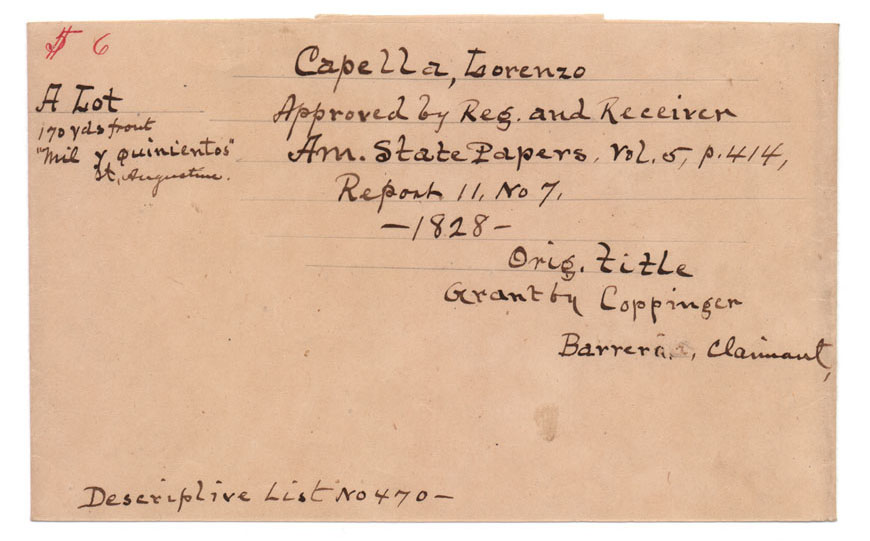 $ 6
Capella, Lorenzo
A Lot
170 yds front
"Mil y quinientos"
St, Augustine.
Approved by Reg. and Receiver
Am. State Papers, Vol. 5, p. 414,
Report 11, No 7,
-1828-
Orig. Title
Grant by Coppinger
Barrera, Claimant,
Descriptive List No 470-